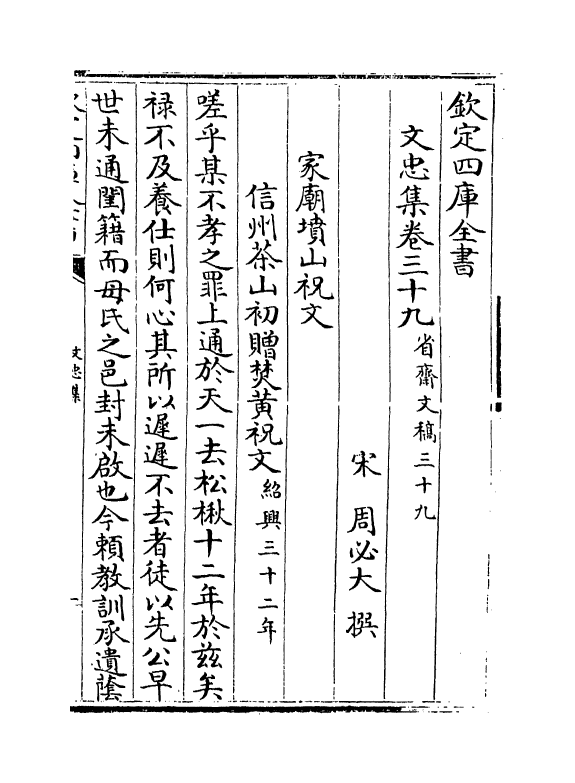 欽定四庫全書
文忠集卷三十九 省齋文稿三十九
宋 周必大 撰
家廟墳山祝文
信州茶山初贈焚黄祝文 紹興三十二年
嗟乎某不孝之罪上通於天一去松楸十二年於兹矣
禄不及養仕則何心其所以遲遲不去者徒以先公早
世未通閨籍而母氏之邑封未啟也今頼教訓承遺蔭
文忠集